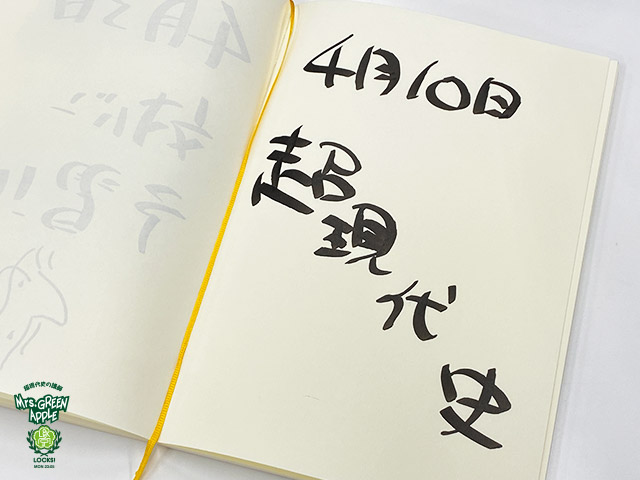 4月10日
超現代史
超現代史の講師
Mrs. GREEN
APPLE
LOCKS!
MON 23:05